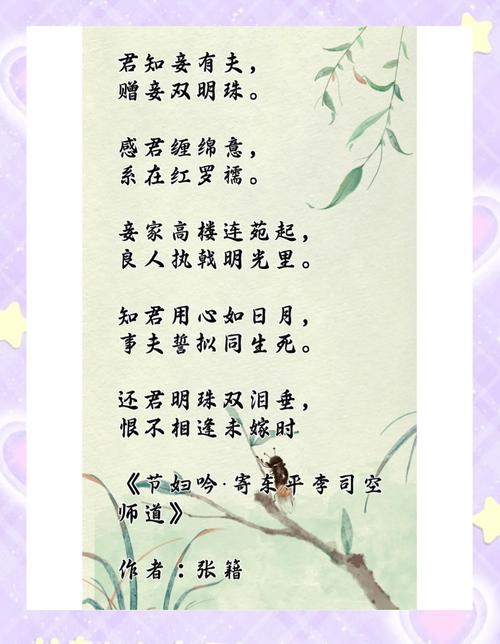 君知妾有夫，
赠妾双明珠。
感君缠绵意，
系在红罗襦。
妾家高楼连苑起，
良人执戟明光里。
知君用心如日月，
事夫誓拟同生死。
还君明珠双泪垂，
恨不相逢未嫁时
《节妇吟·寄东平李司空
师道》
作者：张籍